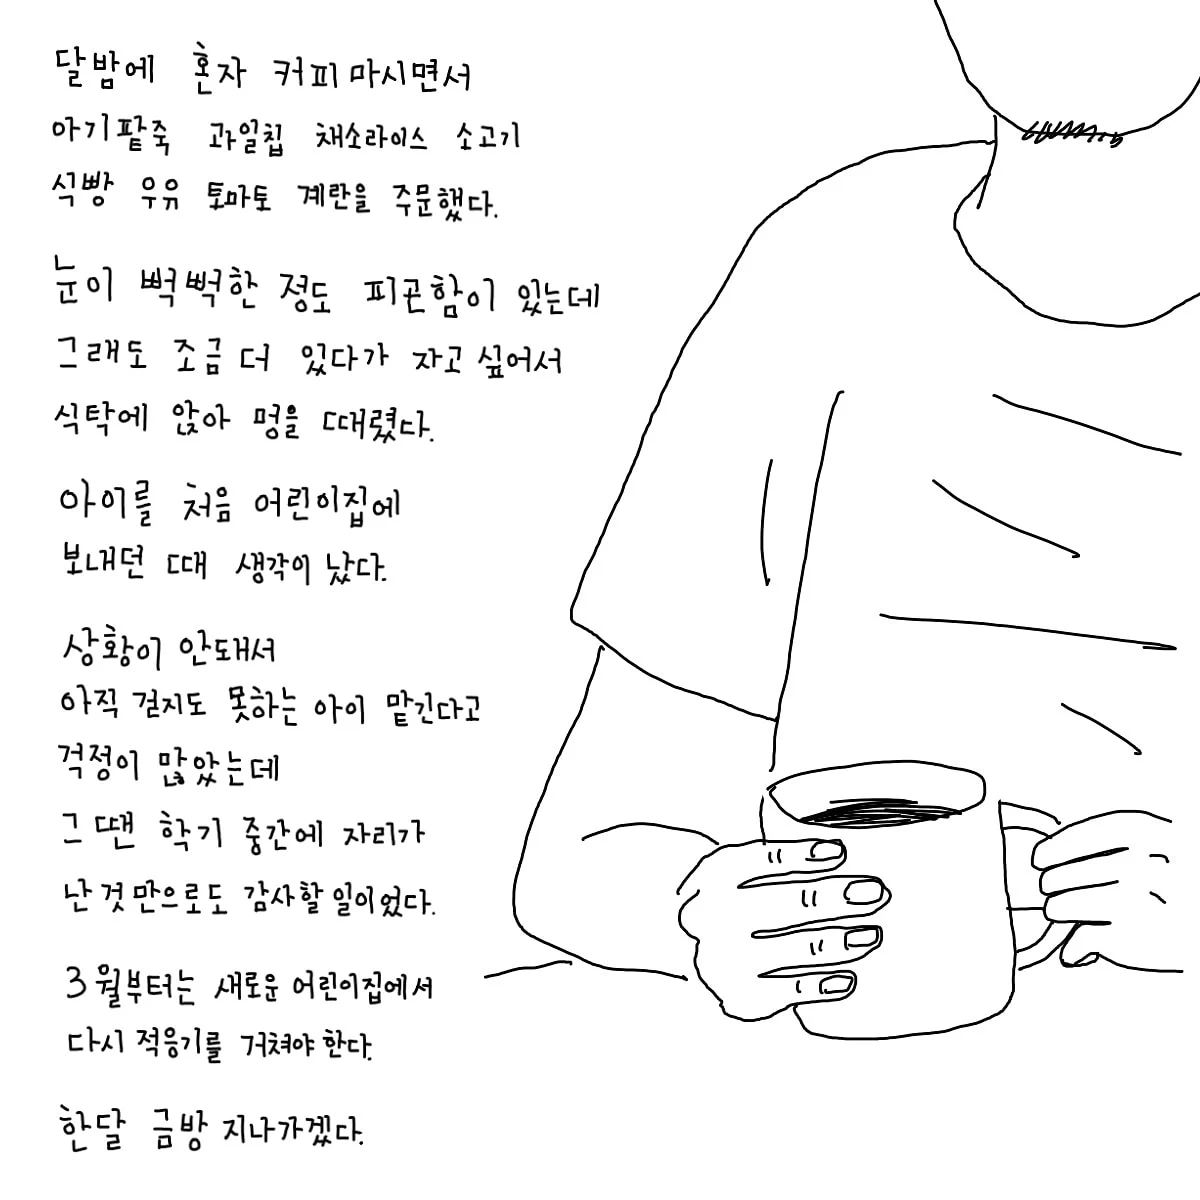 달밤에 혼자 커피 마시면서
아기팥죽 과일칩 채소라이스 소고기
식빵 우유 토마토 계란을 주문했다.
눈이 뻑뻑한 정도 피곤함이 있는데
그래도 조금 더 있다가 자고 싶어서
식탁에 앉아 멍을 때렸다.
아이를 처음 어린이집에
보내던 때 생각이 났다.
상황이 안돼서
아직 걷지도 못하는 아이 맡긴다고
걱정이 많았는데
그 땐 학기 중간에 자리가
난 것 만으로도 감사할 일이었다.
3월부터는 새로운 어린이집에서
다시 적응기를 거쳐야 한다.
한달 금방 지나가겠다.